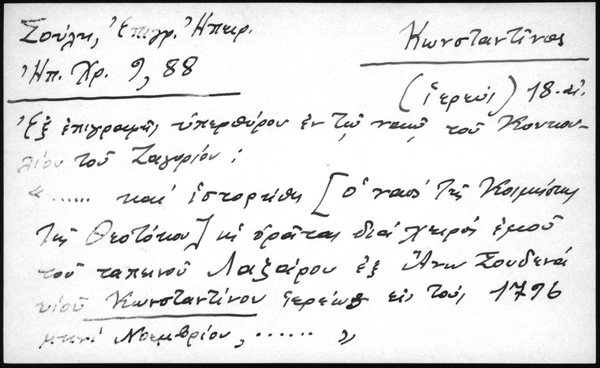 Σούλη, Ἐπιγρ. Ἠπειρ.
Ἠπ. Χρ. 9, 88
Κωνσταντῖνος
(ἱερεύς) 18. αἰ.
Ἐξ ἐπιγραφῆς ὑπερθύρου ἐν τῷ ναῷ τοῦ Κουκου-
λίου τοῦ Ζαγορίου:
«...... καὶ ἱστορήθη [ὁ ναὸς τῆς Κοιμήσεως
τῆς Θεοτόκου] κὲ ὁρᾶται διὰ χειρός ἐμοῦ
τοῦ ταπεινοῦ Λαζάρου ἐξ Ἄνω Σουδενά
υἱοῦ Κωνσταντίνου ἱερέως εἰς τούς 1796
μηνὶ Νοεμβρίου, ...... »